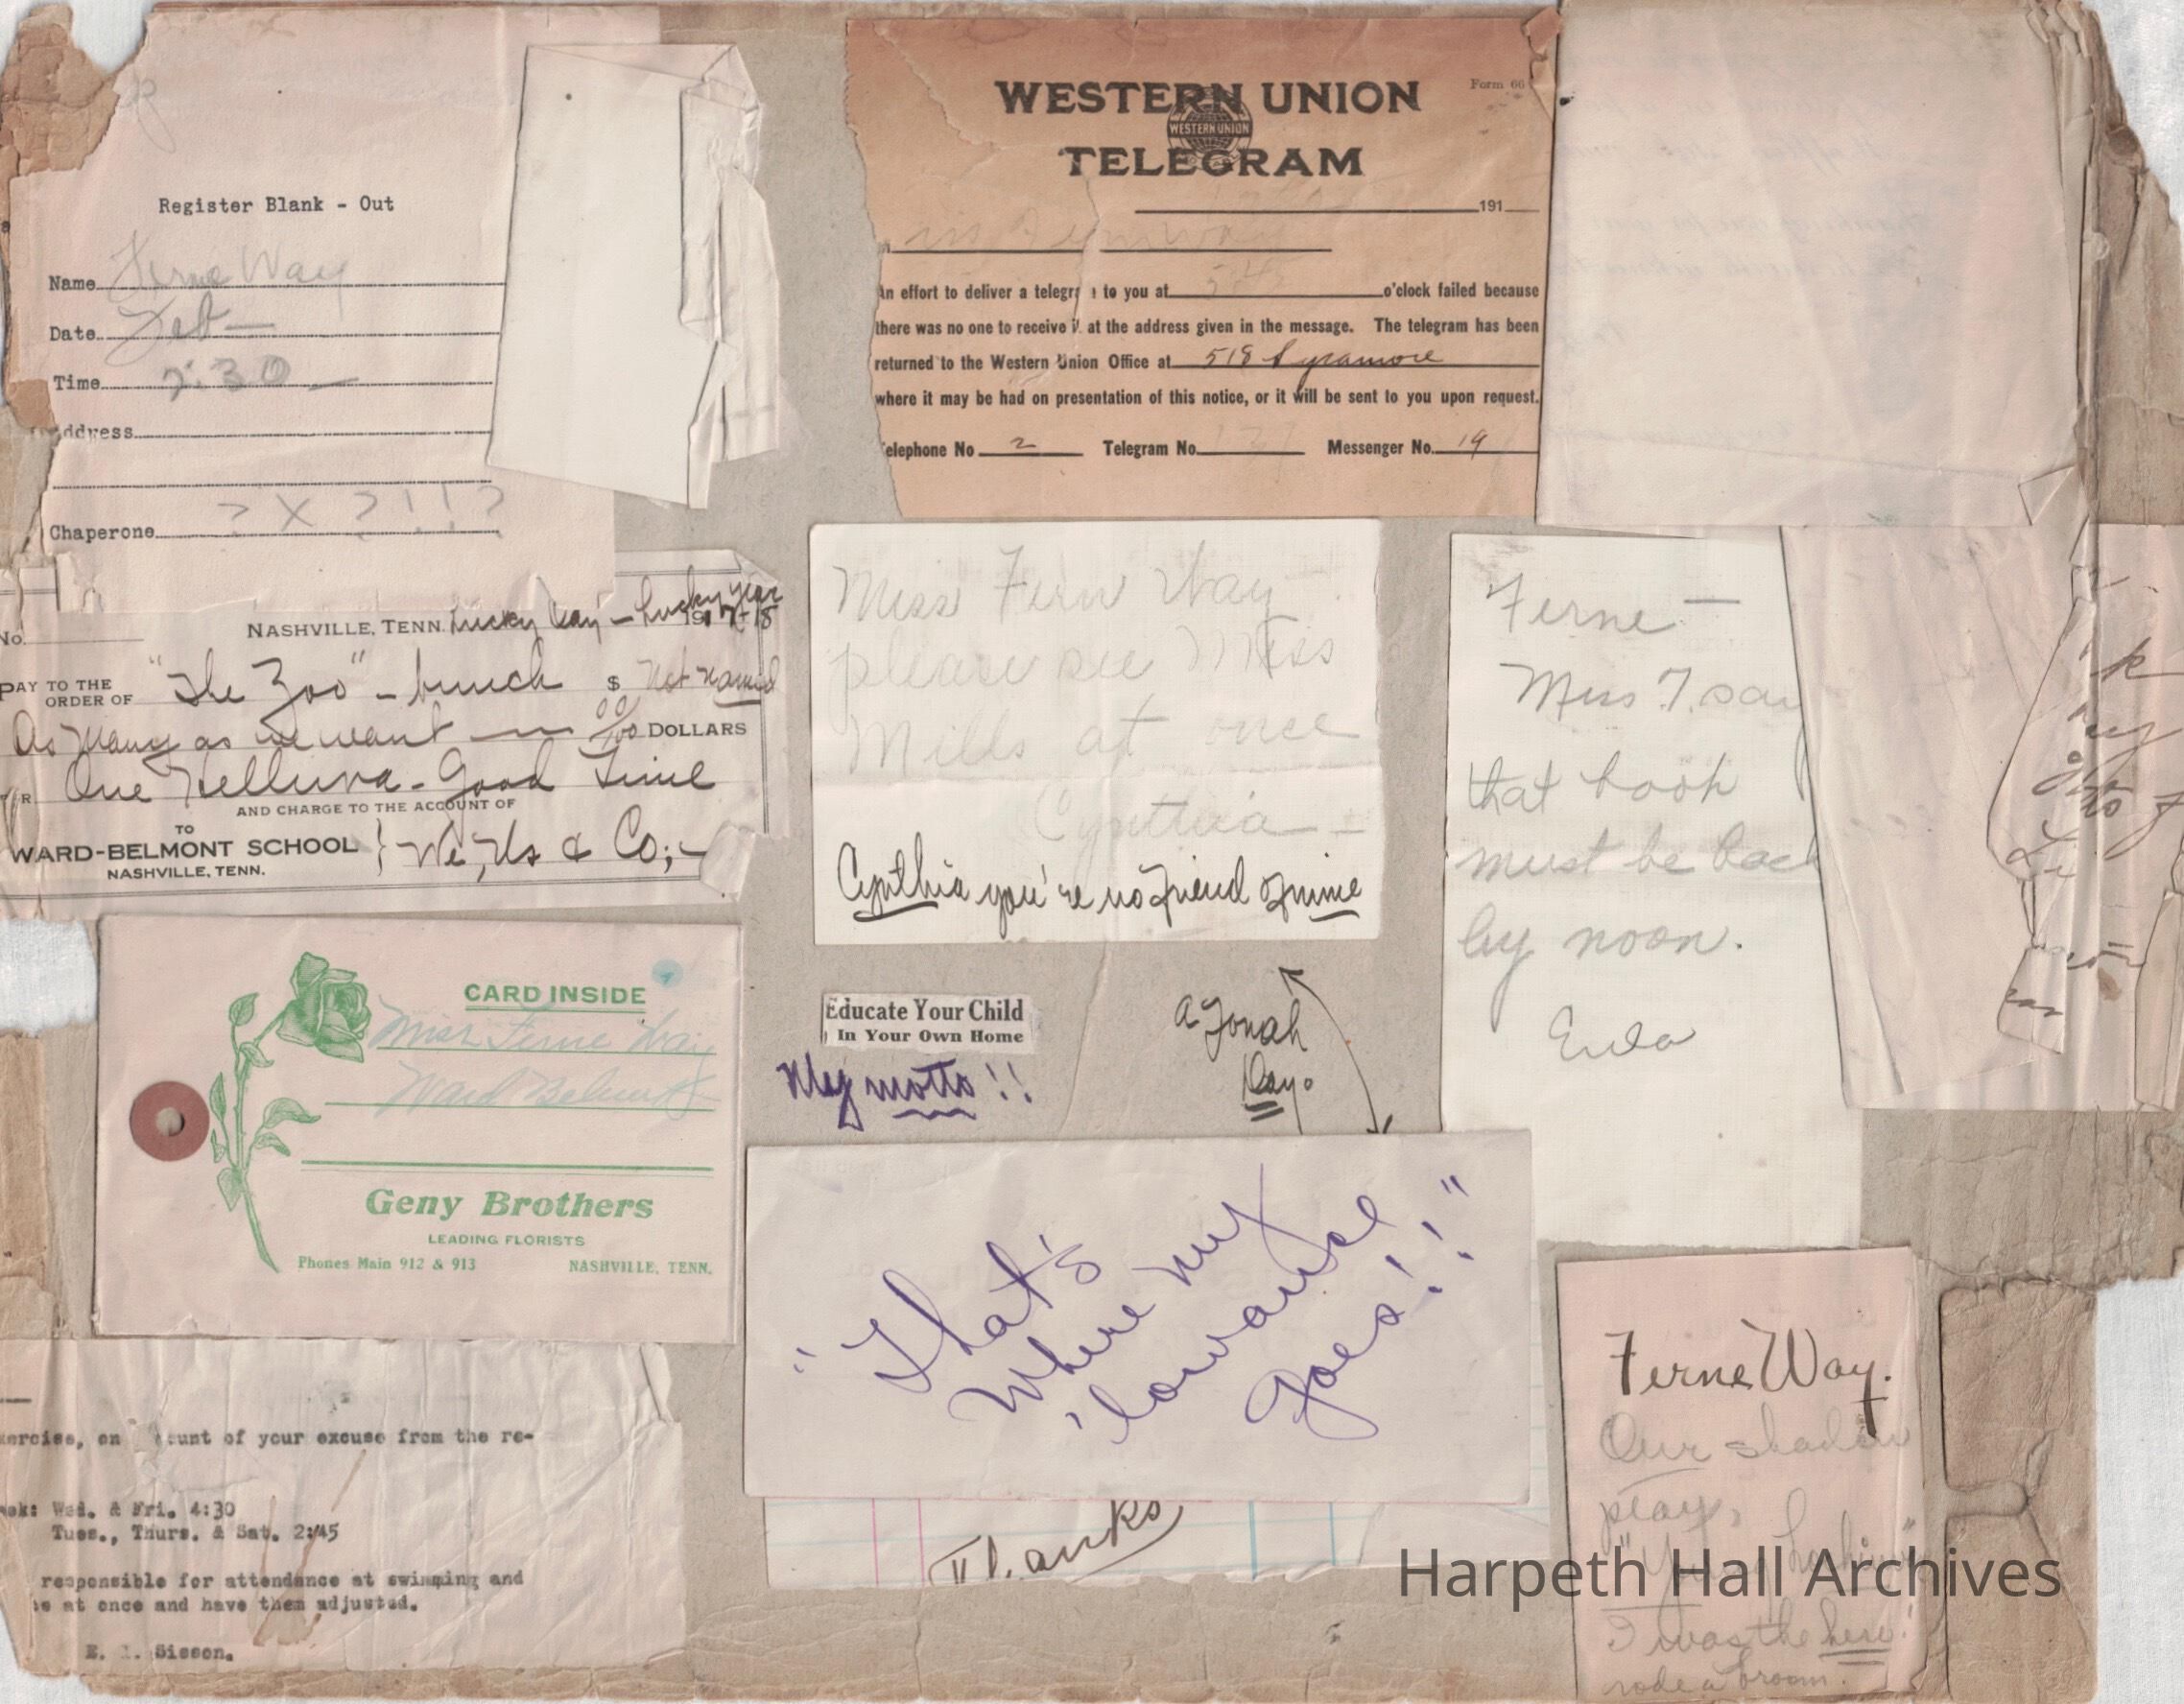 Register Blank - Out
Name Ferne Way
Date Feb —
Time 2:30 —
ddress
Chaperone ? X ? ! ! ?
WESTERN UNION
TELEGRAM
WESTERN UNION
Form 66
191
An effort to deliver a telegra to you at 545 o'clock failed because
there was no one to receive it at the address given in the message. The telegram has been
returned to the Western Union Office at 518 Sycamore
where it may be had on presentation of this notice, or it will be sent to you upon request.
elephone No 2 Telegram No. Messenger No. 19
No.
NASHVILLE, TENN. Lucky Day — Lucky year 1917-18
PAY TO THE
ORDER OF "The Zoo" - bunch $ Not named
As Many as we want — 00/100 DOLLARS
One Helluva - Good Time
AND CHARGE TO THE ACCOUNT OF
TO
WARD-BELMONT SCHOOL } We, Us & Co;-
NASHVILLE, TENN.
Miss Fern Way
please see Miss
Mills at once
Cynthia —
Cynthia you're no friend of mine
Ferne —
Miss T. say
that book
must be back
by noon.
Eula
CARD INSIDE
Miss Ferne Way
Ward Belmont
Geny Brothers
LEADING FLORISTS
Phones Main 912 & 913 NASHVILLE, TENN.
Educate Your Child
In Your Own Home
My motto!!
A Jonah
Day.
"That's
where my
'lowance
goes!!"
Thanks
xercise, on ount of your excuse from the re-
eek: Wed. & Fri. 4:30
Tues., Thurs. & Sat. 2:45
responsible for attendance at swimming and
e at once and have them adjusted.
E. . Sisson.
Ferne Way.
Our shadow
play,
I was the hero!
rode a broom.
Harpeth Hall Archives